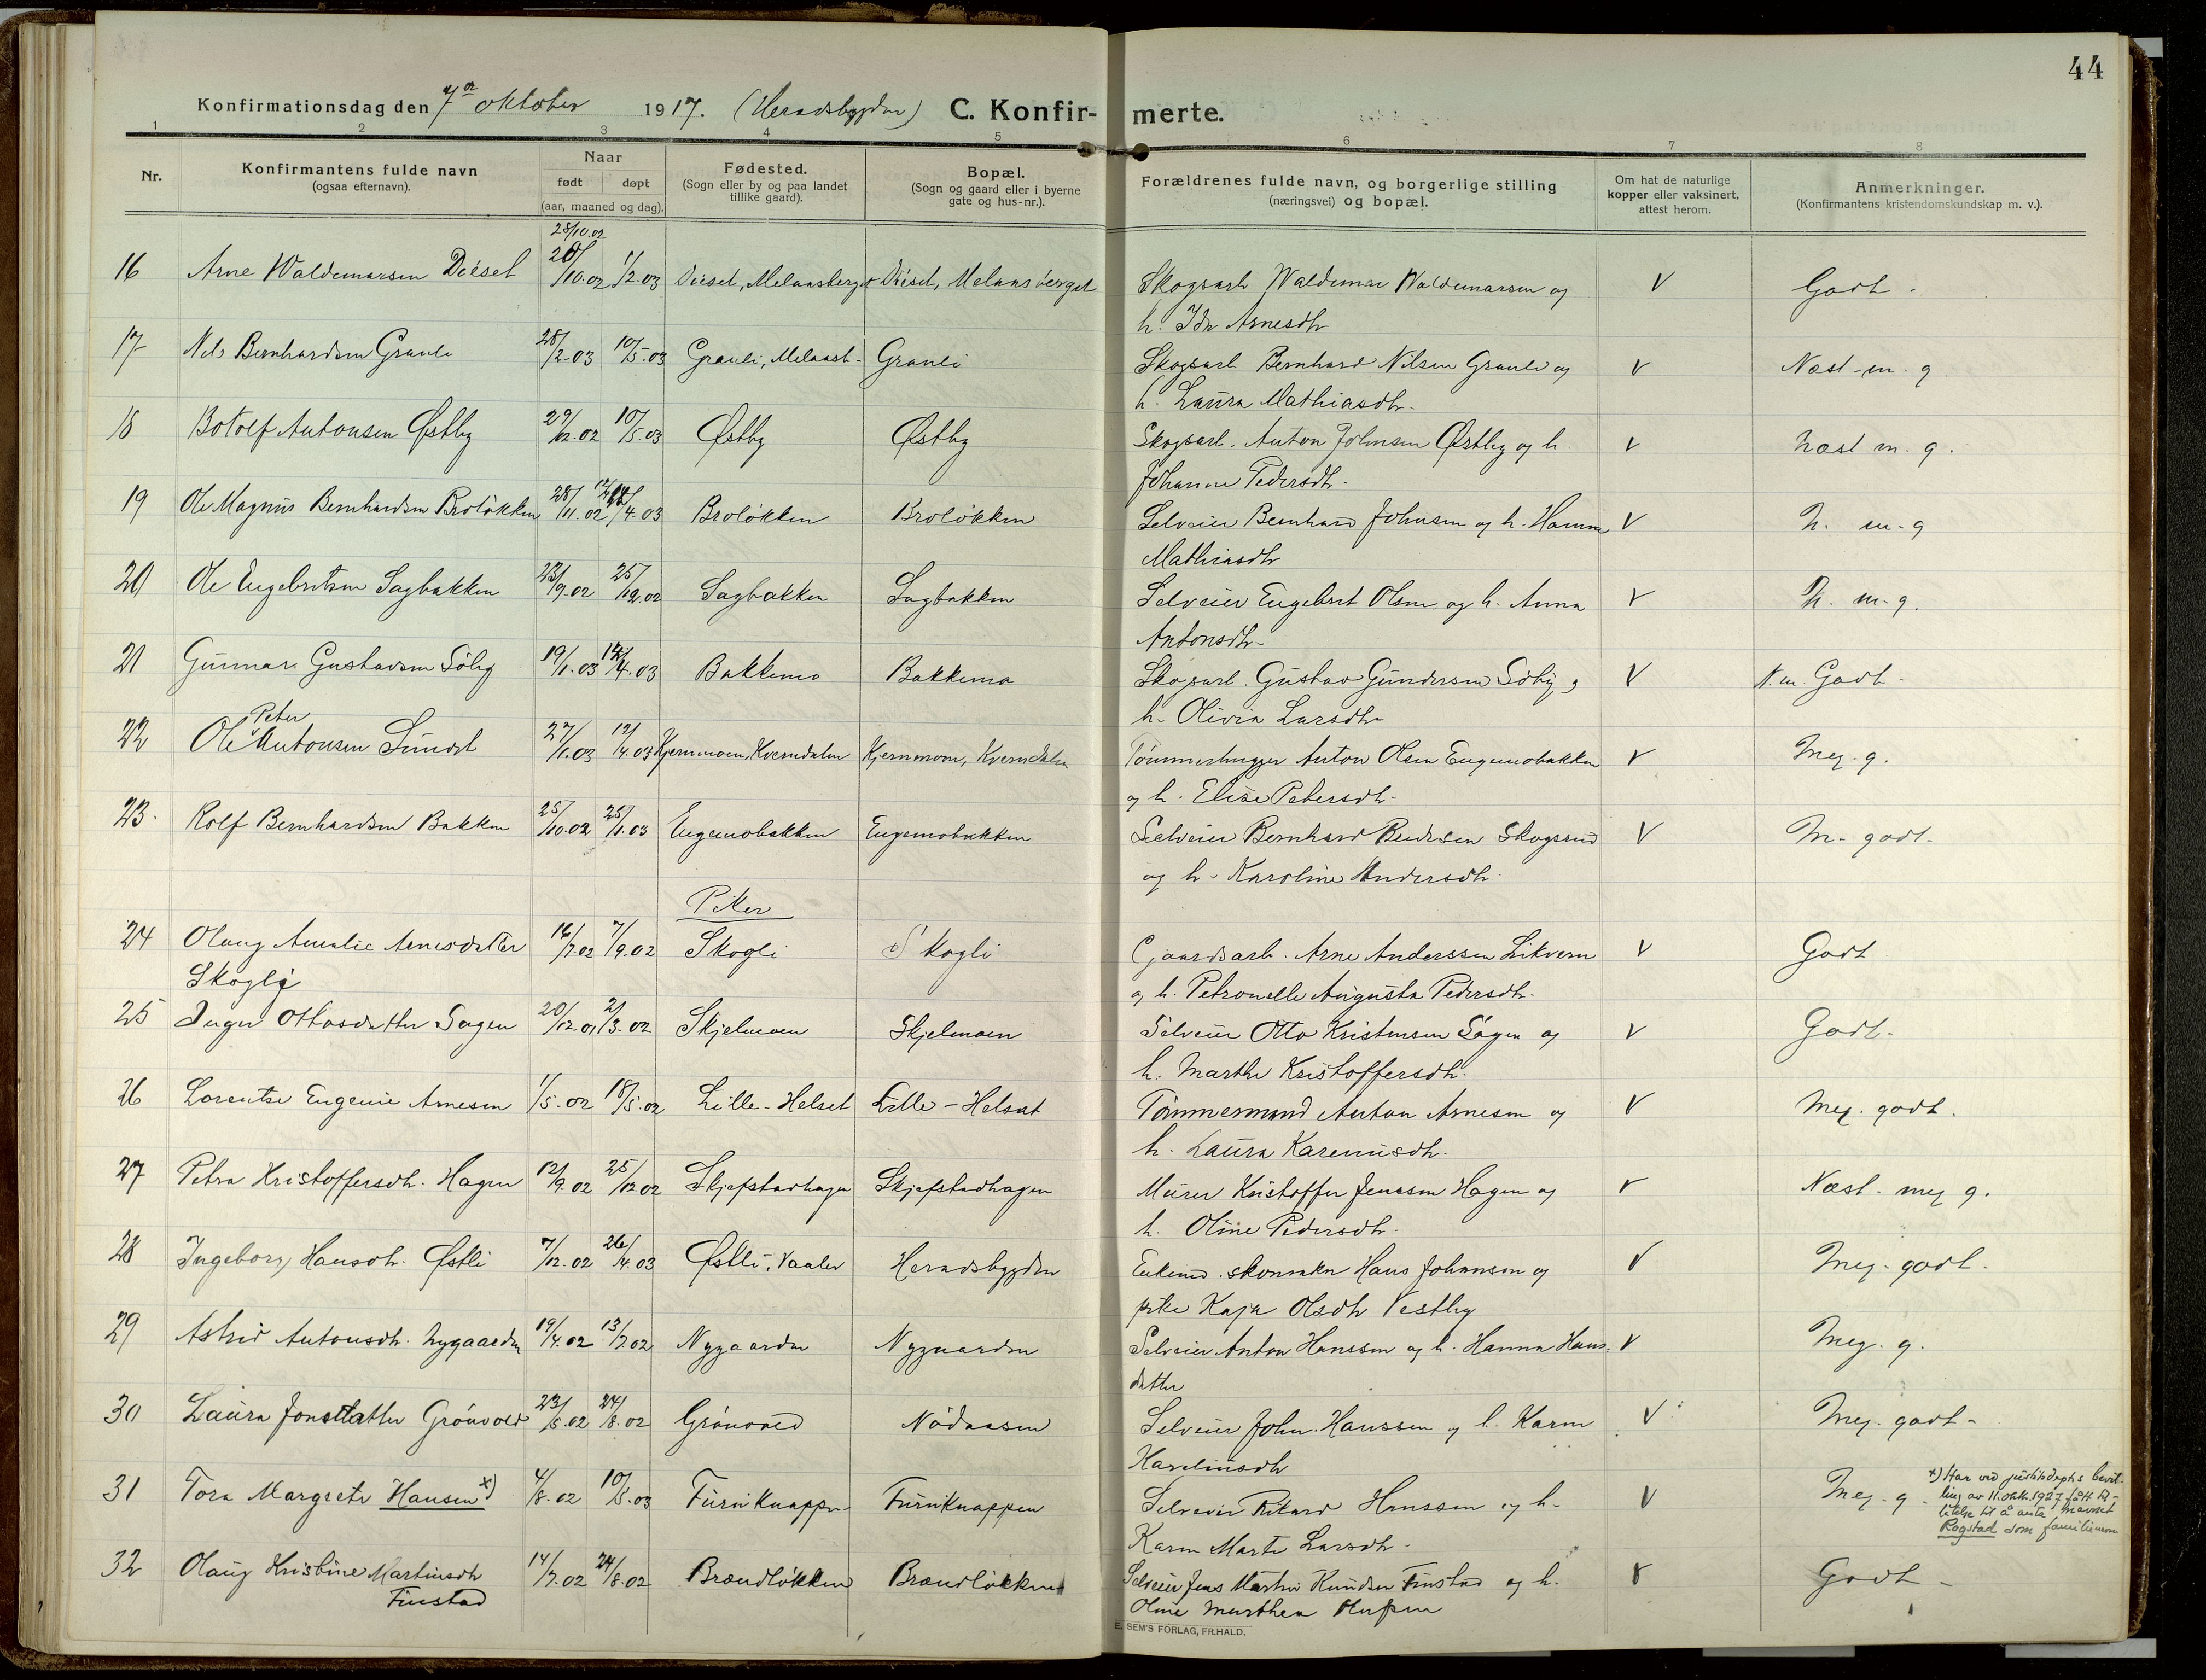 44
Konfirmationsdag den 7de oktober 1917. (Heradsbygden) C. Konfirmerte.
1 2 3 4 5 6 7 8
Nr.
Konfirmantens fulde navn
(ogsaa efternavn).
Naar
født døpt
(aar, maaned og dag).
Fødested.
(Sogn eller by og paa landet
tillike gaard).
Bopæl.
(Sogn og gaard eller i byerne
gate og hus-nr.).
Forældrenes fulde navn, og borgerlige stilling
(næringsvei) og bopæl.
Om hat de naturlige
kopper eller vaksinert,
attest herom.
Anmerkninger.
(Konfirmantens kristendomskundskap m. v.).
28/10.02
16 Arne Waldemarsen Dieset 28/10.02 1/2.03 Dieset, Melaasberget Dieset, Melaasberget Skogsarb Waldemar Waldemarsen og V Godt.
h. Ida Arnesdtr
17 Nils Bernhardsen Granli 28/2-03 10/5-03 Granli, Melaasb- Granli Skogsarb Bernhard Nilsen Granli og V Næst-m. g
h. Laura Mathiasdtr-
18 Botolf Antonsen Østby 29/12.02 10/5.03 Østby Østby Skogsarb. Anton Johnsen Østby og h. V Næst m. g.
Johanne Pedersdtr-
19 Ole Magnus Bernhardsen Broløkken 28/11.02 12/4.03 Broløkken Broløkken Selveier Bernhard Johnsen og h. Hanna V N. m-g
Mathiasdtr
20 Ole Engebretsen Sagbakken 23/9.02 25/12.02 Sagbakken Sagbakken Selveier Engebret Olsen og h. Anna V N. m-g.
Antonsdtr-
21 Gunnar Gustavsen Søby 19/1.03 12/4.03 Bakkemo Bakkemo Skogsarb. Gustav Gundersen Søby og V N.m. Godt-
h. Olivia Larsdtr
Peter
22 Ole Antonsen Sundt 27/1.03 12/4.03 Kjernmoen, Kverndalen Kjernmoen, Kverndalen Tømmerhugger Anton Olsen Engemobakken V Meg-g.
og h. Elise Petersdtr-
23. Rolf Bernhardsen Bakken 25/10.02 25/1.03 Engemobakken Engemobakken Selveier Bernhard Pedersen Skogsrud V M- godt-
og h- Karoline Andersdtr
Piker
24 Olaug Amalie Arnesdatter 16/7.02 7/9.02 Skogli Skogli Gjaardsarb. Arne Anderssen Likvern V Godt
Skogli og h. Petronelle Augusta Pedersdtr-
25 Inger Ottosdatter Sagen 20/12.01 2/3-02 Skjelmoen Skjelmoen Selveier Otto Kristensen Sagen og V Godt-
h. Marthe Kristoffersdtr-
26 Lorentze Eugenie Arnesen 1/5-02 18/5.02 Lille-Helset Lille-Helset Tømmermand Anton Arnesen og V Meg. godt.
h. Laura Kareniusdtr.
27 Petra Kristoffersdtr. Hagen 12/9.02 25/12.02 Skjefstadhagen Skjefstadhagen Murer Kristoffer Jenssen Hagen og V Næst- meg g.
h. Oline Pedersdtr-
28 Ingeborg Hansdtr. Østli 7/12-02 26/4.03 Østli, Vaaler Heradsbygden Enkemd. skomaker Hans Johansen og V Meg-godt-
pike Kaja Olsdtr Vestby
29 Astrid Antonsdtr. Nygaarden 19/4.02 13/7.02 Nygaarden Nygaarden Selveier Anton Hanssen og h. Hanna Hans- V Meg. g.
datter
30 Laura Jonsdatter Grønvold 23/5.02 24/8.02 Grønvold Nødaasen Selveier John Hanssen og h. Karen V Meg. godt-
Kareliusdtr
31 Tora Margrete Hansen x) 4/8.02 10/5.03 Furuknappen Furuknappen Selveier Rikard Hanssen og h- V Meg-g.
Karen Marte Larsdtr-
x) Har ved justisdepts bevil-
ling av 11. okt. 1927 fått til-
latelse til å anta navnet
Rogstad som familienavn
32 Olaug Kristine Martinsdtr 14/7.02 24/8.02 Brændløkken Brændløkken Selveier Jens Martin Knudsen Finstad og h. V Godt-
Finstad Oline Marthea Olufsen
E. SEM'S FORLAG, FR.HALD.